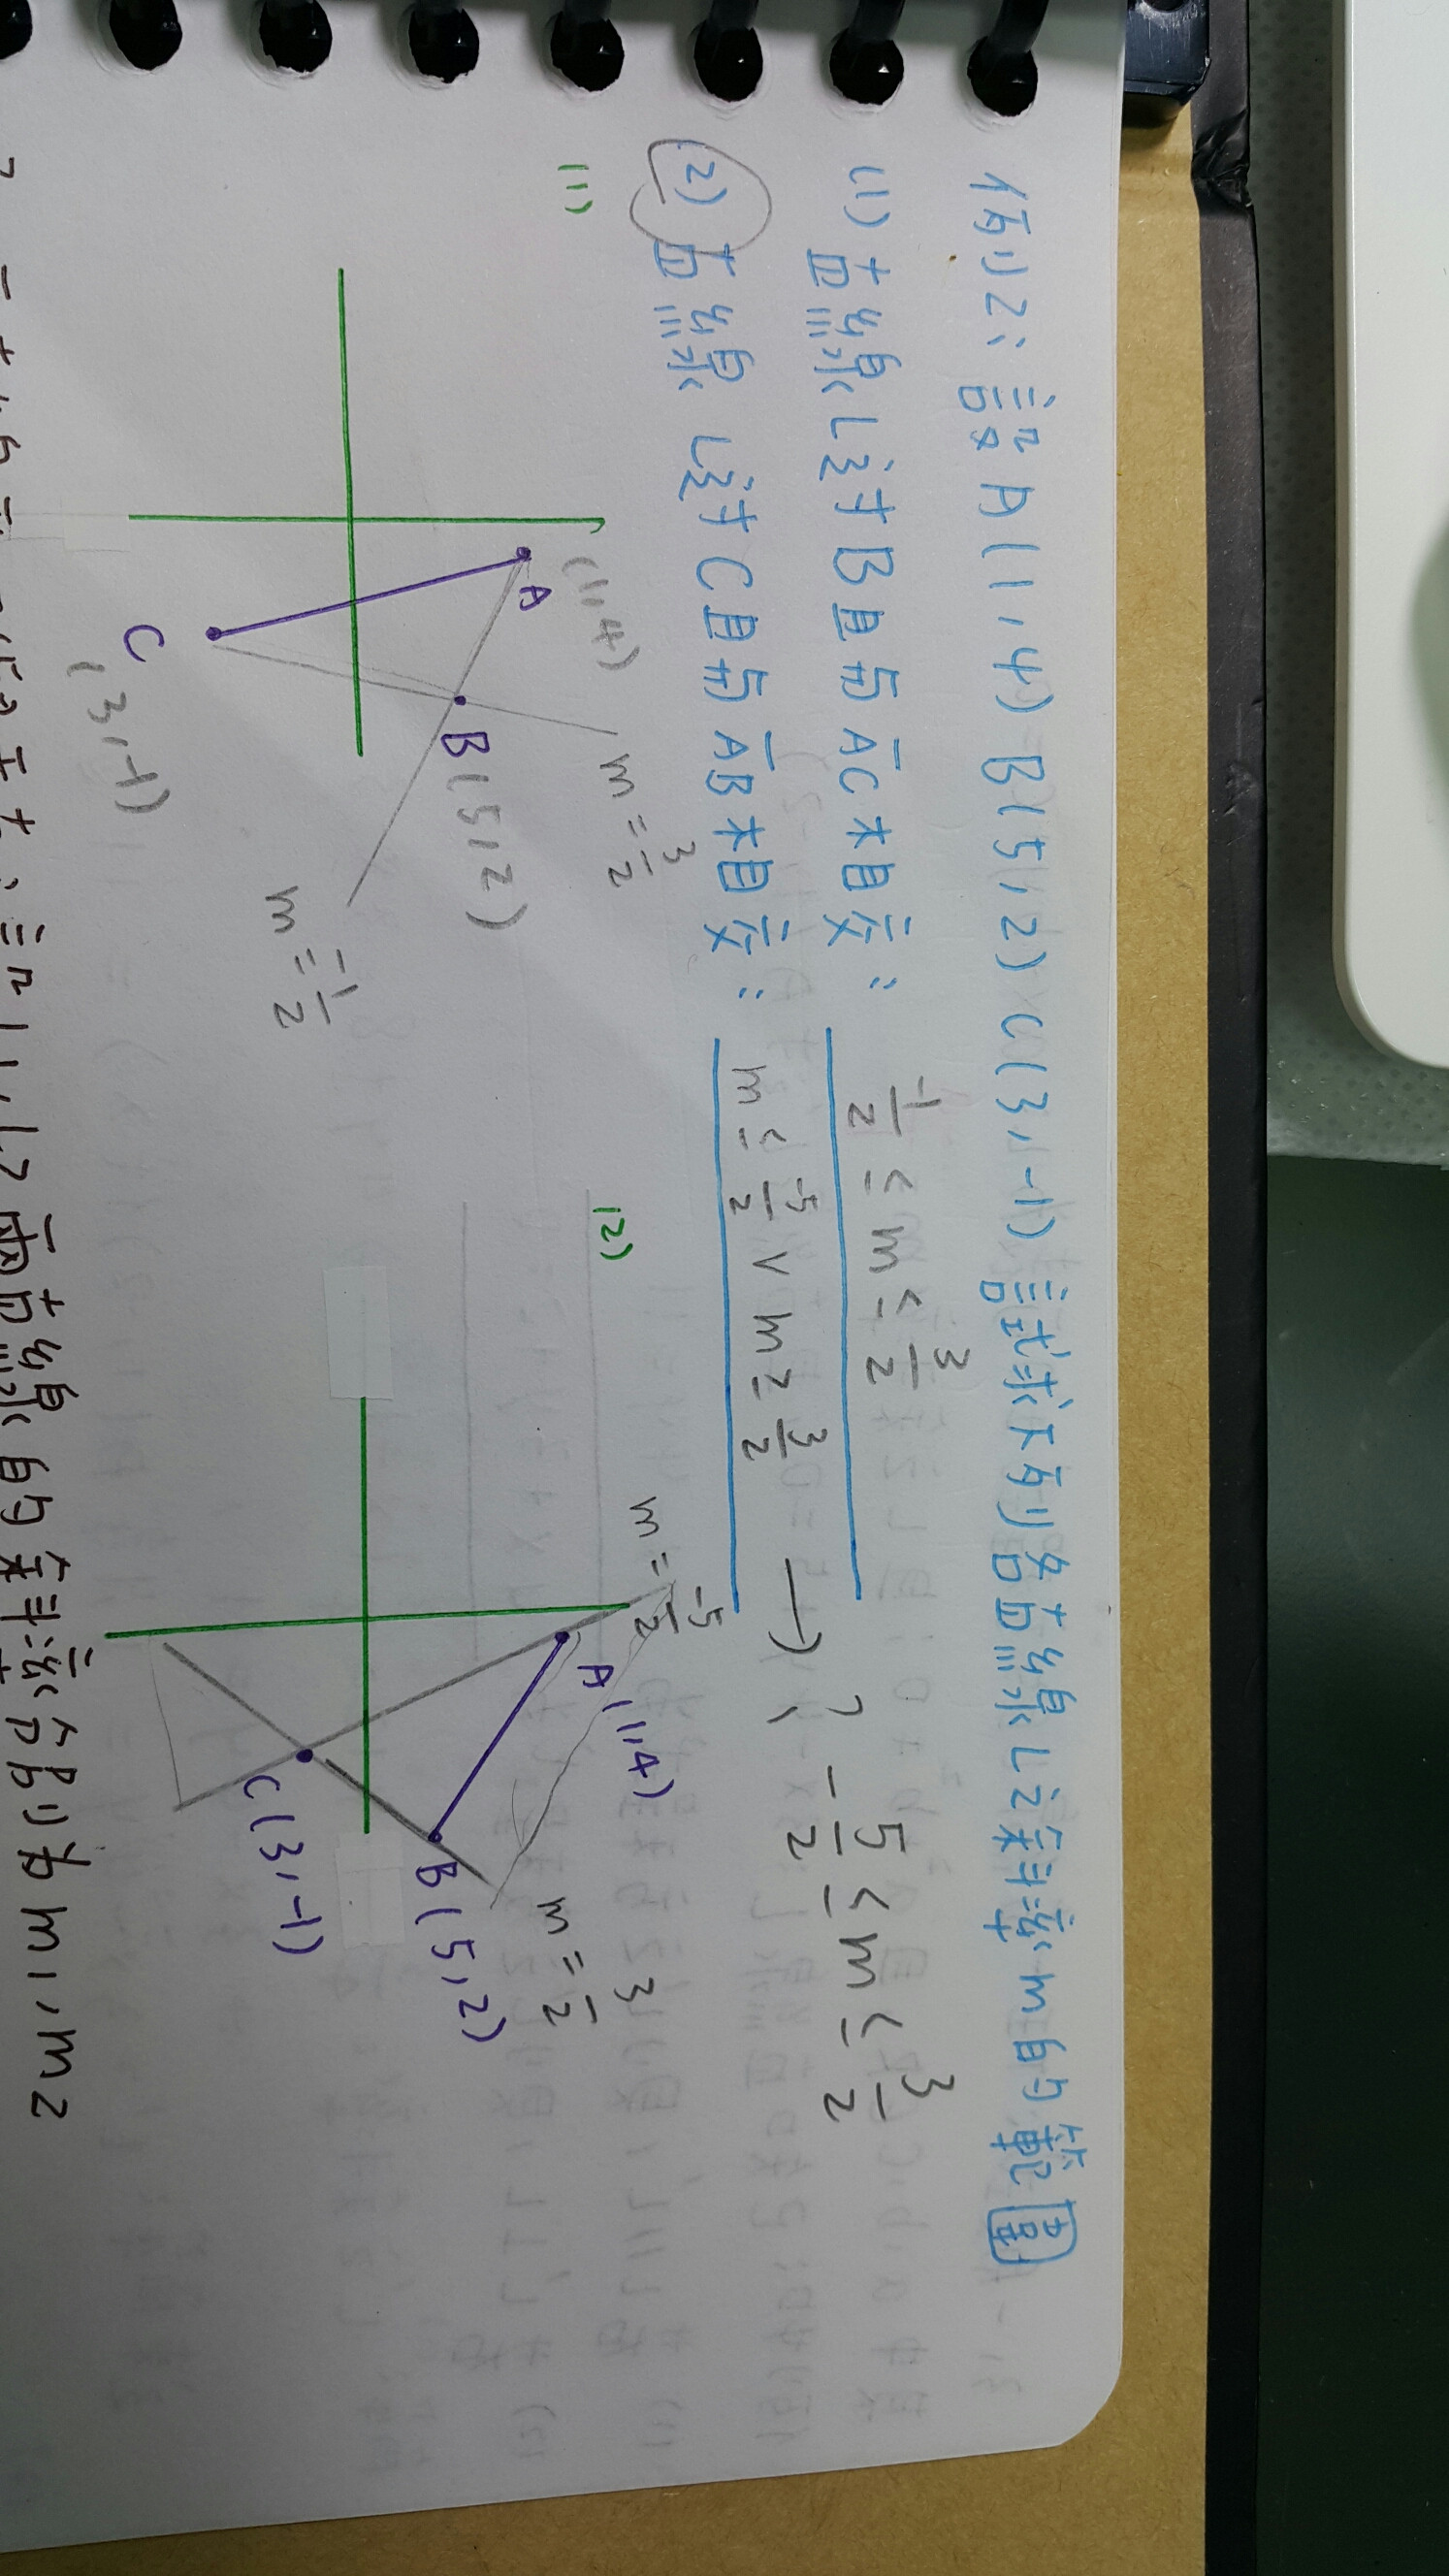 例2、設A(1,4) B(5,2) C(3,-1) 試求下列各直線L之斜率m的範圍
(1) 直線L過B且與AC相交: -1/2 ≤ m ≤ 3/2
(2) 直線L過C且與AB相交: m ≤ -5/2 ∨ m ≥ 3/2 → ? -5/2 ≤ m ≤ 3/2
(1)
A
(1,4)
B(5,2)
C
(3,-1)
m = 3/2
m = -1/2
(2)
m = -5/2
A(1,4)
B(5,2)
C(3,-1)
m = 3/2
設L1,L2兩直線的斜率分別為m1,m2